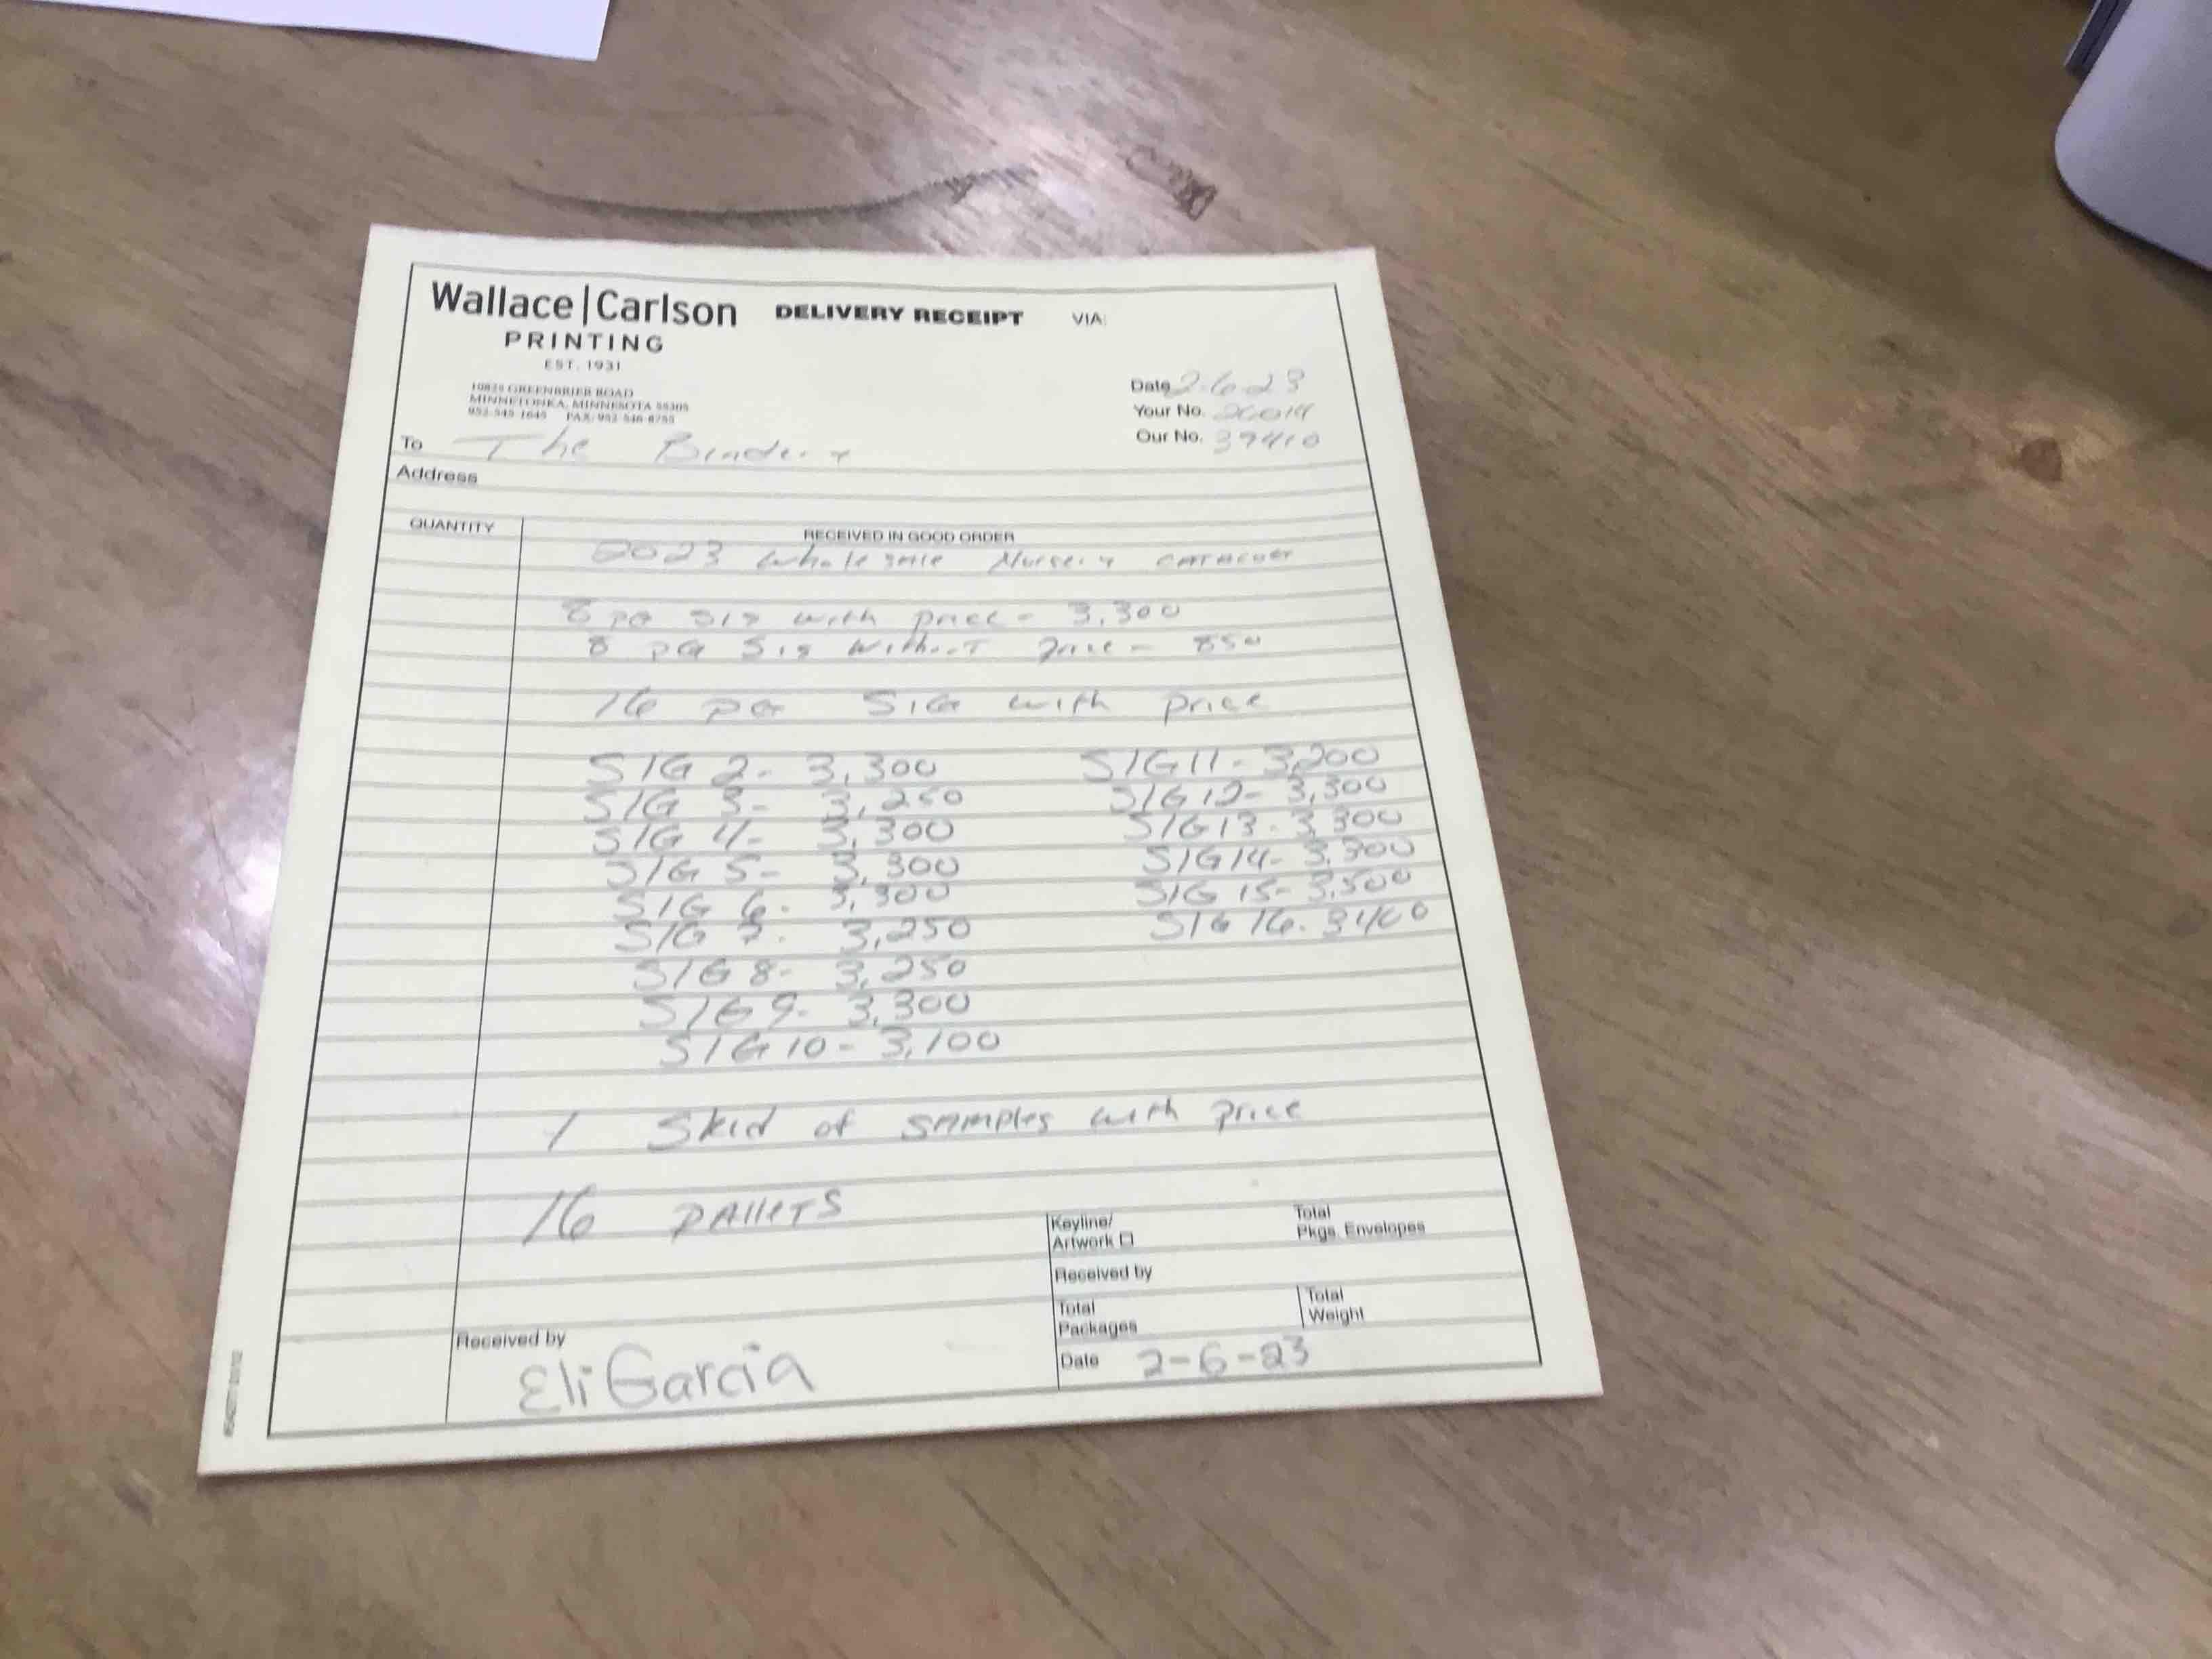 Wallace|Carlson DELIVERY RECEIPT VIA:
PRINTING
EST. 1931
10825 GREENBRIER ROAD
MINNETONKA, MINNESOTA 55305
952-545-1645 FAX: 952-546-8755
Date 2-6-23
Your No. 26014
Our No. 39410
To The Bindery
Address
QUANTITY
RECEIVED IN GOOD ORDER
2023 wholesale Nursery CATALOG
8 PG SIG with price - 3,300
8 PG Sig without price - 850
16 PG SIG with price
SIG 2- 3,300 SIG 11- 3,200
SIG 3- 3,250 SIG 12- 3,300
SIG 4- 3,300 SIG 13- 3,300
SIG 5- 3,300 SIG 14- 3,300
SIG 6- 3,300 SIG 15- 3,500
SIG 7- 3,250 SIG 16- 3400
SIG 8- 3,250
SIG 9- 3,300
SIG 10- 3,100
1 Skid of SAMPles with price
16 PAllETS
Keyline/ Total
Artwork Pkgs. Envelopes
Received by
Total Total
Packages Weight
Received by
Eli Garcia
Date 2-6-23